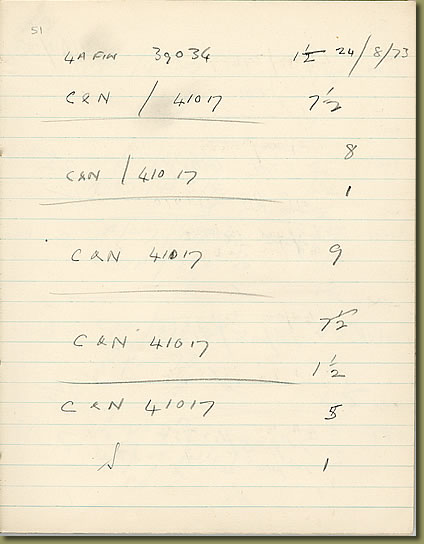 51
4A FIN 39034 1½ 24/8/73
C & N / 41017 7½
8
C&N / 41017
1
C & N 41017 9
7½
C & N 41017
1½
C & N 41017 5
S 1